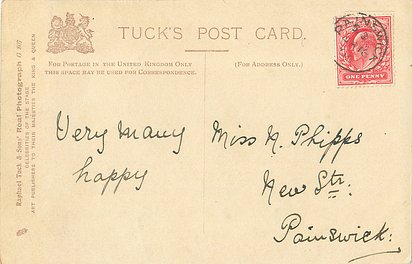 TUCK'S POST CARD.
FOR POSTAGE IN THE UNITED KINGDOM ONLY
THIS SPACE MAY BE USED FOR CORRESPONDENCE.
(FOR ADDRESS ONLY.)
Raphael Tuck & Sons' Real Photograph
CELEBRITIES OF THE STAGE
ART PUBLISHERS TO THEIR MAJESTIES THE KING & QUEEN
PAINSWICK
ONE PENNY
Very many
happy
Miss N. Phipps
New Str.
Painswick.